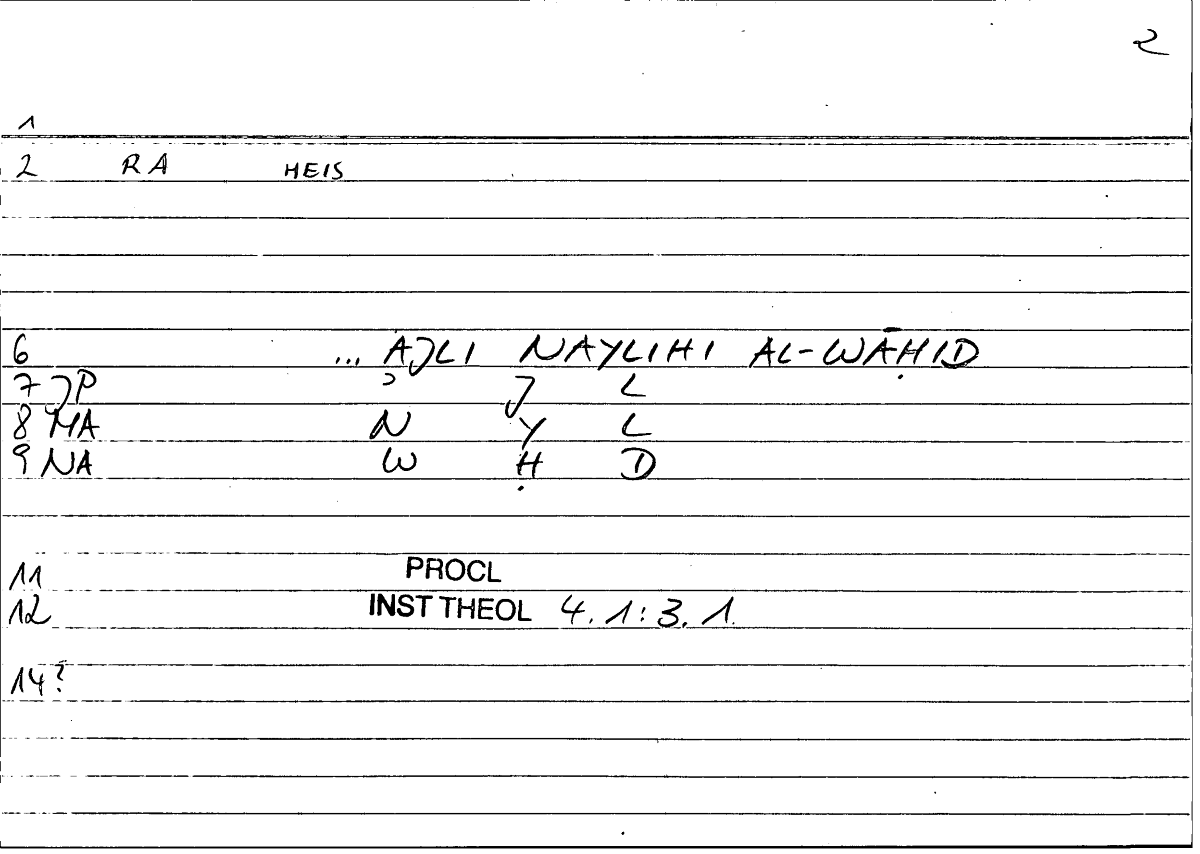 2
1
2 RA HEIS
6 ... AJLI NAYLIHI AL-WĀḤID
7 JP ʾ J L
8 MA N Y L
9 NA W Ḥ D
11 PROCL
12 INST THEOL 4.1:3.1.
14?